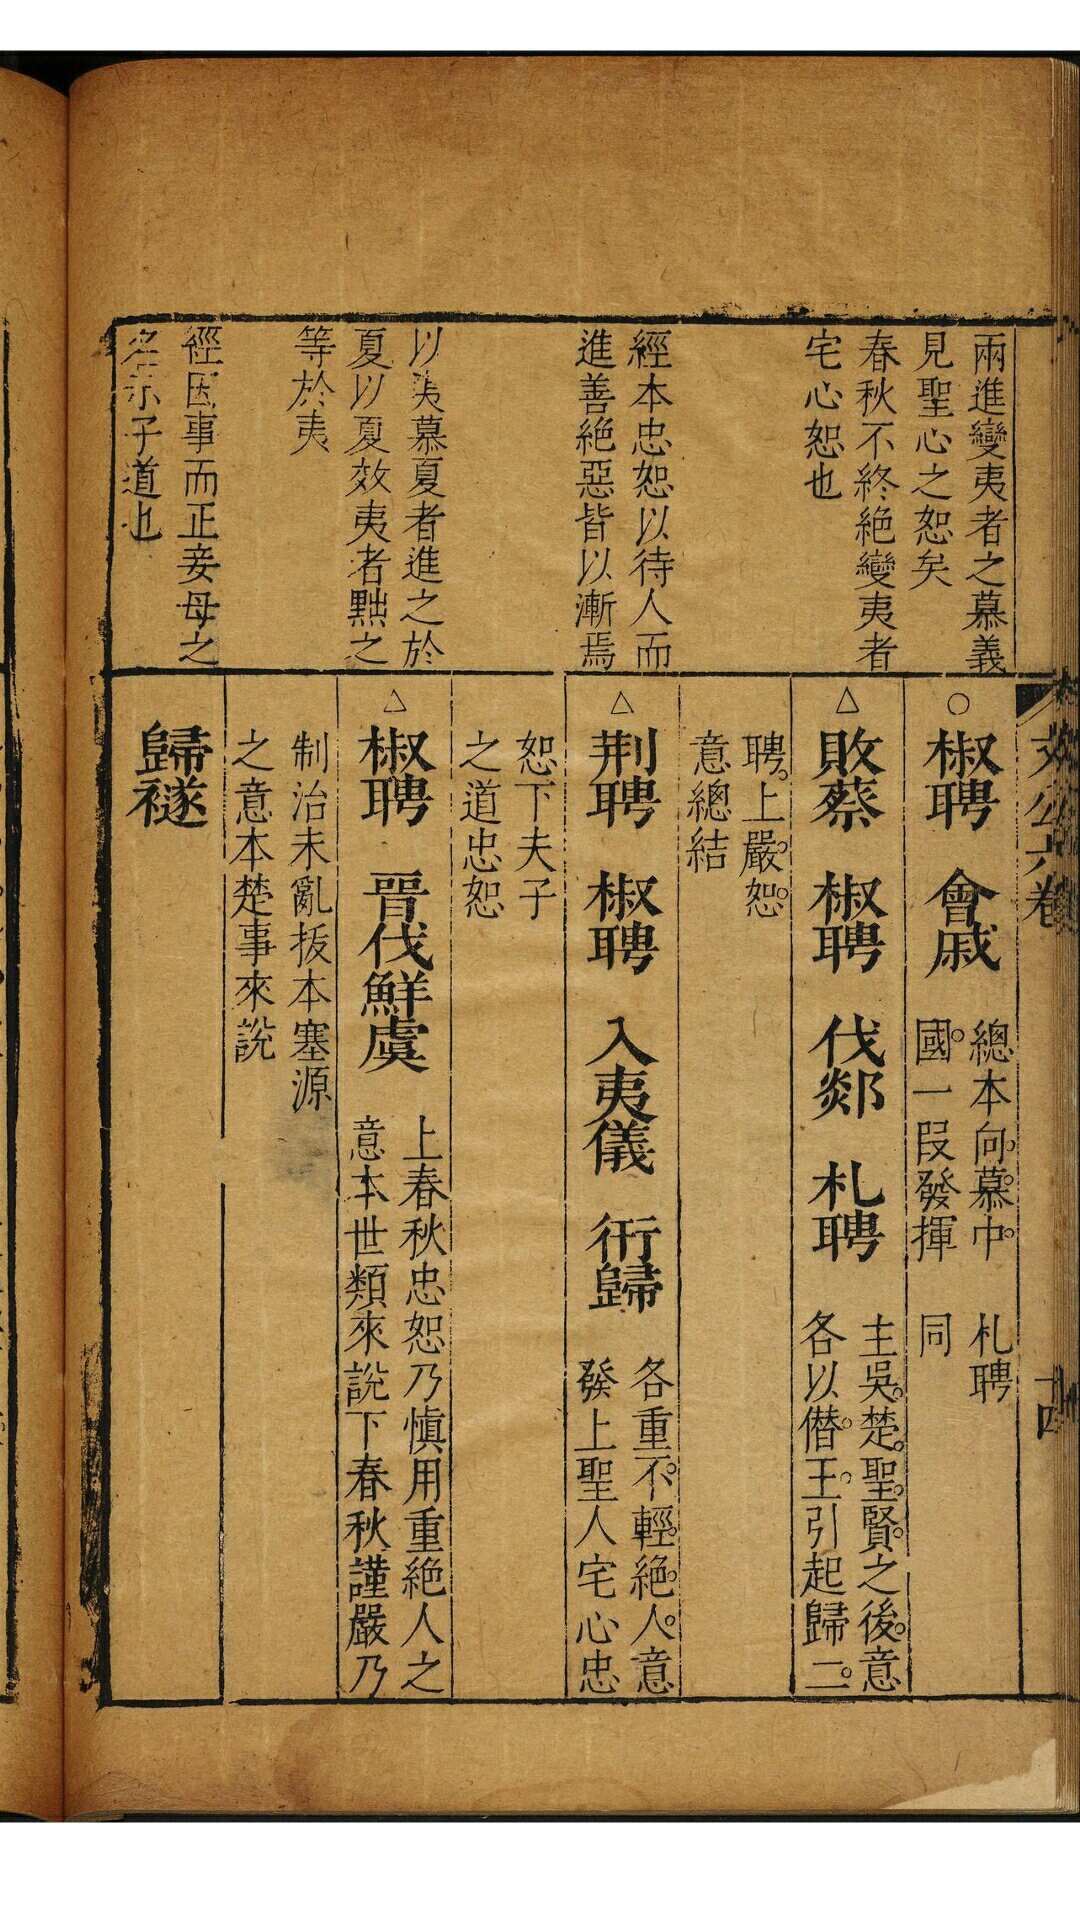 兩進變夷者之慕義
見聖心之恕矣
春秋不終絶變夷者
宅心恕也
經本忠恕以待人而
進善絶惡皆以漸焉
以夷慕夏者進之於
夏以夏效夷者黜之
等於夷
經因事而正妾母之
名示子道也
文公六卷 十四
○椒聘 會戚 總本向慕中 札聘
國一段發揮 同
△敗蔡 椒聘 伐郯 札聘 主吳楚聖賢之後意
各以僣王引起歸二
聘上嚴恕
意總結
△荆聘 椒聘 入夷儀 衎歸 各重不輕絶人意
發上聖人宅心忠
恕下夫子
之道忠恕
△椒聘 晉伐鮮虞 上春秋忠恕乃愼用重絶人之
意本世類來說下春秋謹嚴乃
制治未亂扳本塞源
之意本楚事來說
歸襚